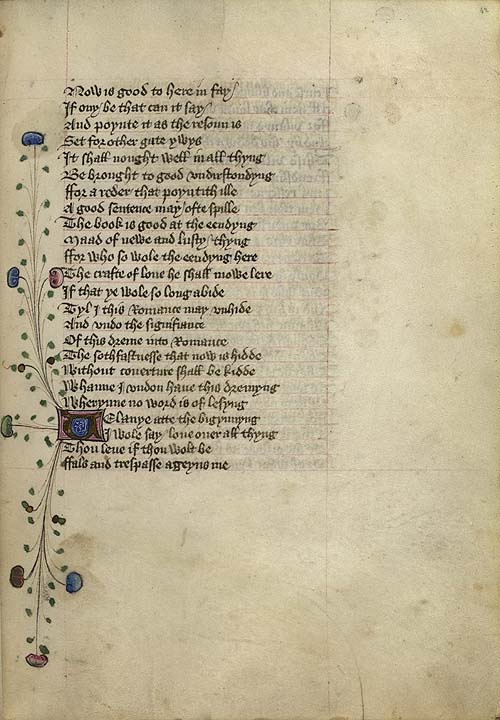 42
Now is good to here in fay
If ony be that can it say
And poynte it as the resoun is
Set for other gate ywys
It shall nought well in all thyng
Be brought to good vndirstondyng
ffor a reder that poyntith ille
A good sentence may ofte spille
The book is good at the eendyng
Maad of newe and lusty thyng
ffor who so wole the eendyng here
The crafte of loue he shall mowe lere
If that ye wole so long abide
Tyl I this Romance may vnhide
And vndo the signifiance
Of this dreme into Romance
The sothfastnesse that now is hidde
Without couerture shall be kidde
Whanne I vndon haue this dremyng
Wherynne no word is of lesyng
Velanye atte the bigynnyng
I wole say loue ouer all thyng
Thou leue if thou wolt be
ffals and trespasse ageyns me